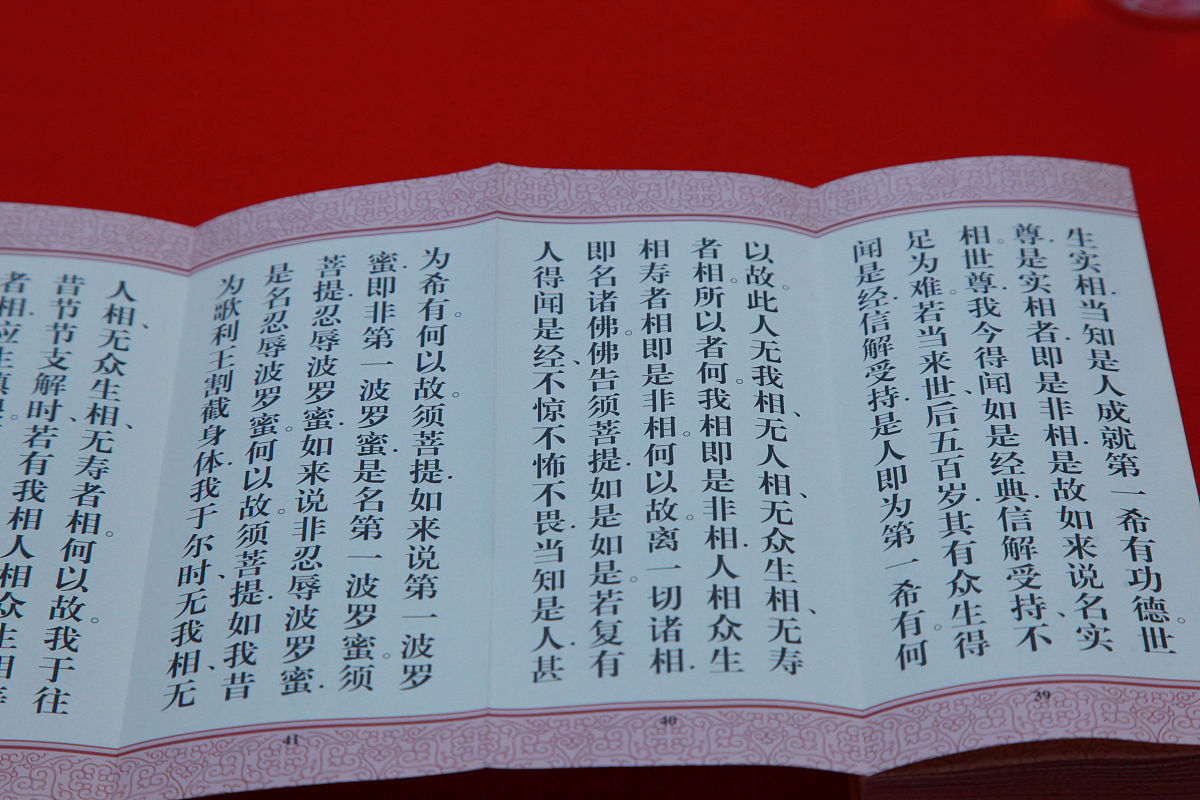 生实相.当知是人成就第一希有功德。世
尊.是实相者.即是非相.是故如来说名实
相。世尊.我今得闻如是经典.信解受持、不
足为难.若当来世、后五百岁.其有众生.得
闻是经.信解受持.是人即为第一希有。何
以故。此人无我相、无人相、无众生相、无寿
者相。所以者何。我相即是非相.人相众生
相寿者相.即是非相。何以故。离一切诸相.
即名诸佛。佛告须菩提.如是如是。若复有
人得闻是经、不惊不怖不畏.当知是人.甚
为希有。何以故。须菩提.如来说第一波罗
蜜.即非第一波罗蜜.是名第一波罗蜜。须
菩提.忍辱波罗蜜.如来说非忍辱波罗蜜.
是名忍辱波罗蜜。何以故。须菩提.如我昔
为歌利王割截身体.我于尔时、无我相、无
人相、无众生相、无寿者相。何以故。我于往
昔节节支解时、若有我相人相众生相寿
39
40
41